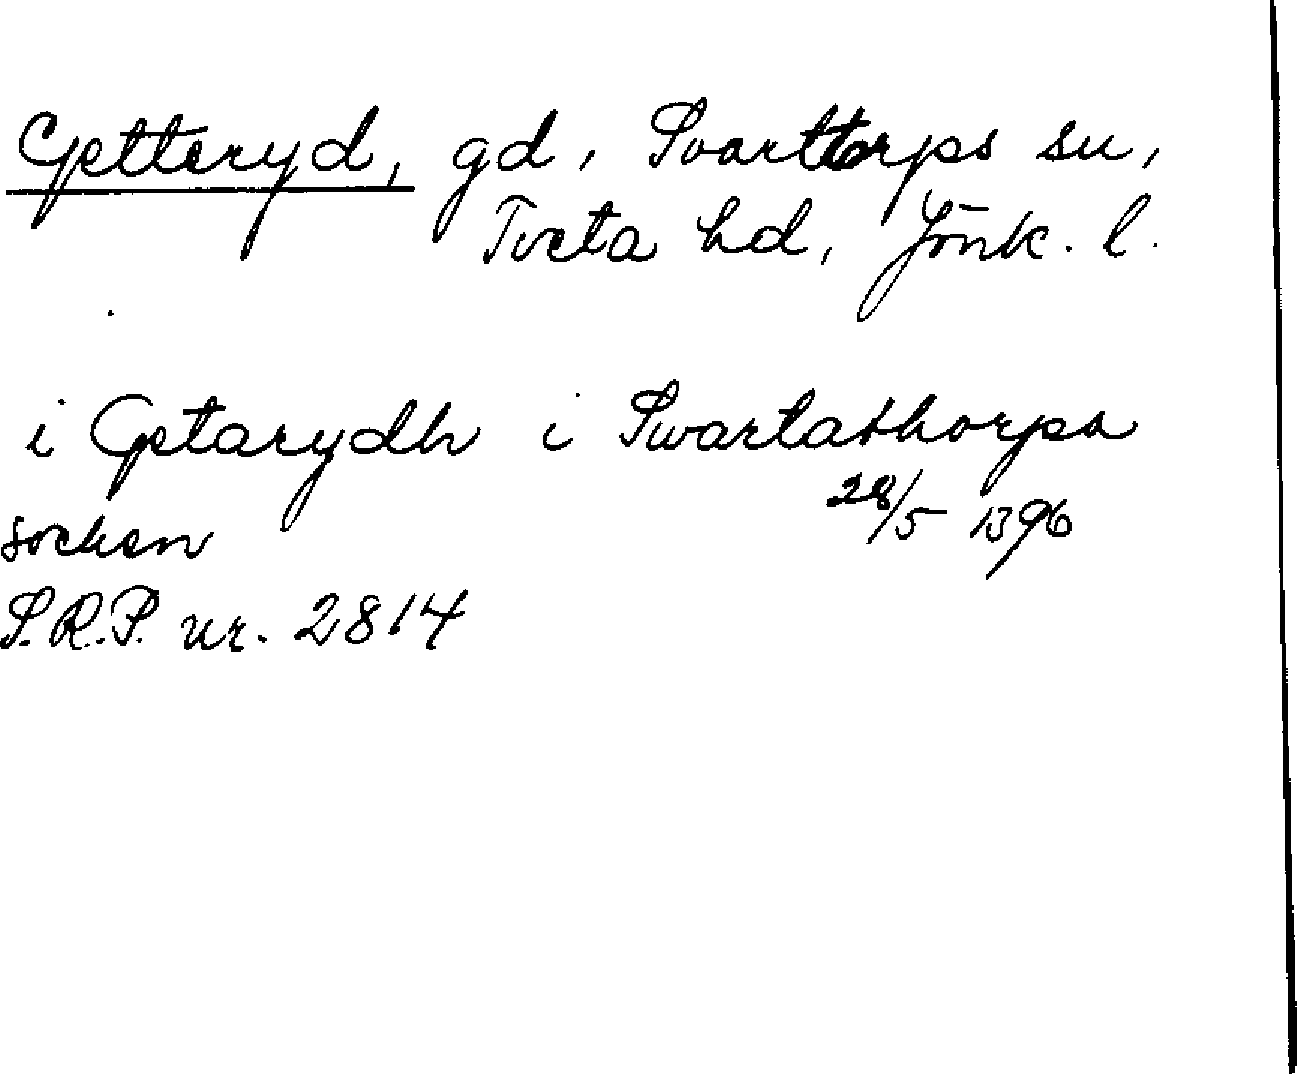 Getteryd, gd, Svarttorps sn,
Tveta hd, Jönk. l.
i Getarydh i Swartathorps
28/5 1396
socken
S.R.P. nr. 2814